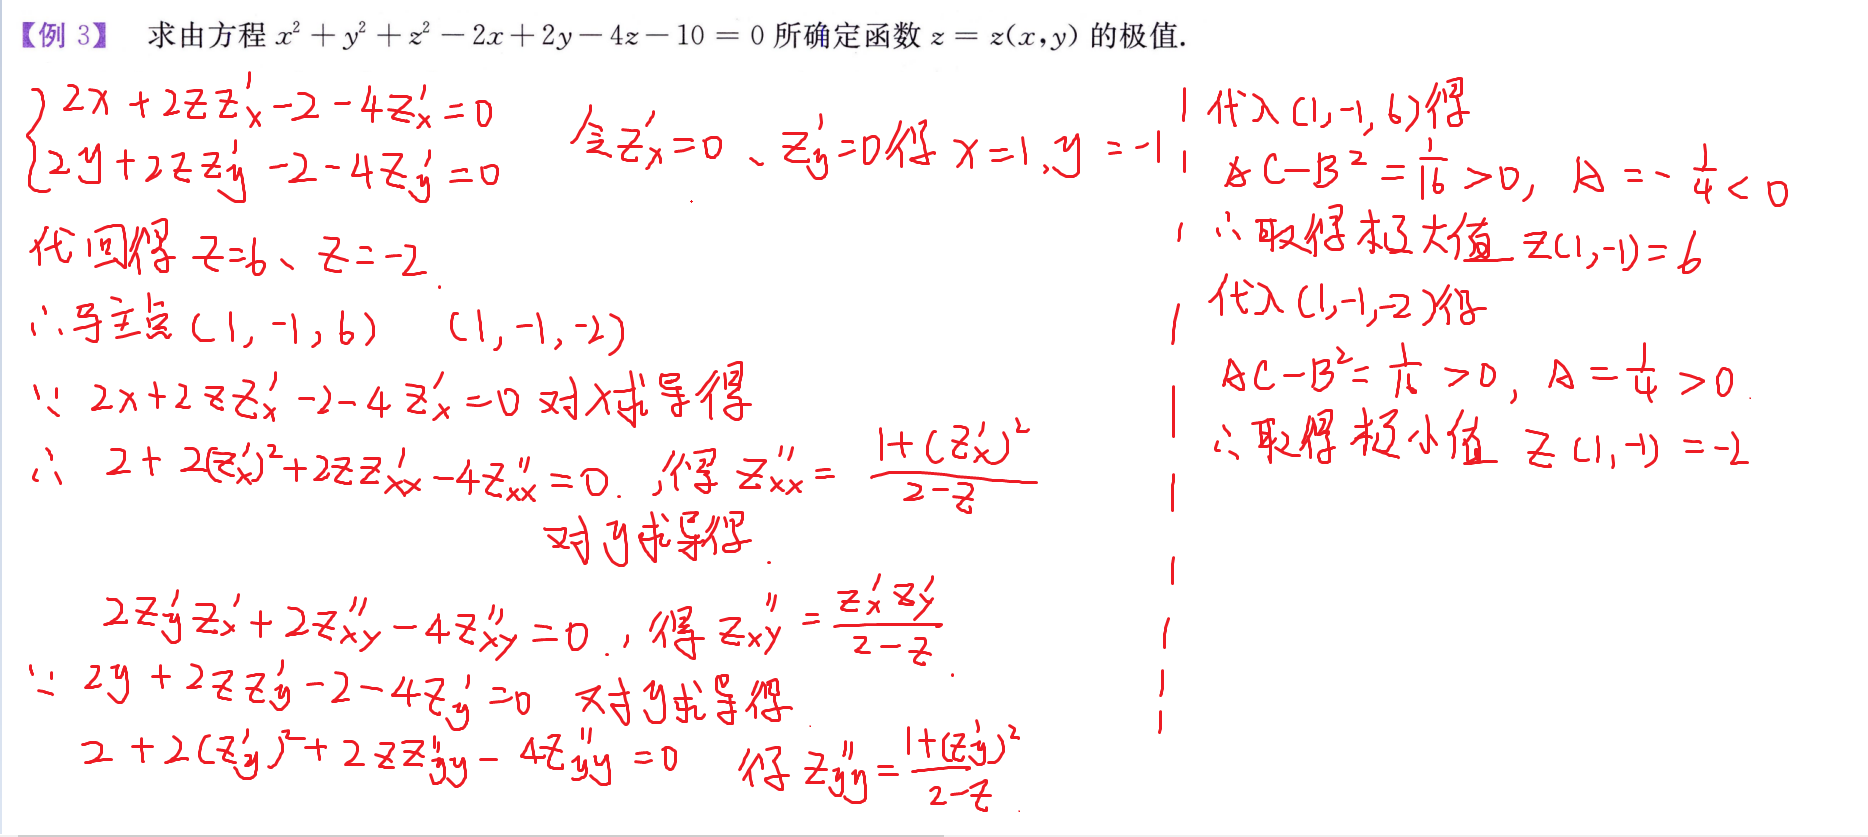 【例 3】 求由方程 x² + y² + z² − 2x + 2y − 4z − 10 = 0 所确定函数 z = z(x,y) 的极值.
{ 2x + 2zz'x − 2 − 4z'x = 0
2y + 2zz'y − 2 − 4z'y = 0
令z'x = 0、z'y = 0得 x = 1, y = −1
代回得 z=6、z=−2.
∴导主点(1, −1, 6) (1, −1, −2)
∵ 2x + 2zz'x − 2 − 4z'x = 0 对x求导得
∴ 2 + 2(z'x)² + 2zz'xx − 4z''xx = 0. ,得 z''xx = (1 + (z'x)²)/(2 − z)
对y求导得.
2z'y z'x + 2z''xy − 4z''xy = 0. ,得 z''xy = (z'x z'y)/(2 − z).
∵ 2y + 2zz'y − 2 − 4z'y = 0 对y求导得.
2 + 2(z'y)² + 2zz''yy − 4z''yy = 0 得 z''yy = (1 + (z'y)²)/(2 − z).
代入(1, −1, 6)得
AC − B² = 1/16 > 0, A = −1/4 < 0
∴取得极大值 z(1, −1) = 6
代入(1, −1, −2)得
AC − B² = 1/16 > 0, A = 1/4 > 0.
∴取得极小值 z(1, −1) = −2